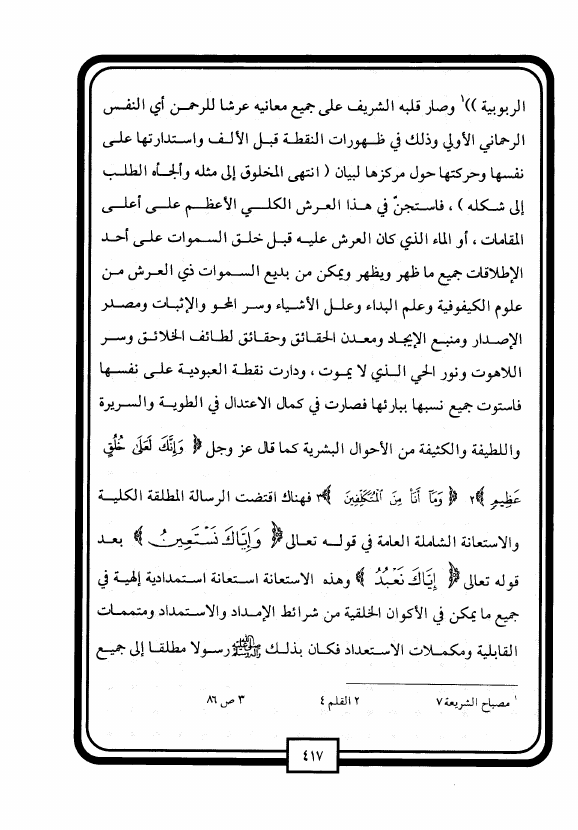 الربوبية ))١ وصار قلبه الشريف على جميع معانيه عرشا للرحمن أي النفس
الرحماني الأولي وذلك في ظهورات النقطة قبل الألف واستدارتها على
نفسها وحركتها حول مركزها لبيان ( انتهى المخلوق إلى مثله وألجأه الطلب
إلى شكله ) ، فاستجنّ في هذا العرش الكلي الأعظم على أعلى
المقامات ، أو الماء الذي كان العرش عليه قبل خلق السموات على أحد
الإطلاقات جميع ما ظهر ويظهر ويمكن من بديع السموات ذي العرش من
علوم الكيفوفية وعلم البداء وعلل الأشياء وسر المحو والإثبات ومصدر
الإصدار ومنبع الإيجاد ومعدن الحقائق وحقائق لطائف الخلائق وسر
اللاهوت ونور الحي الذي لا يموت ، ودارت نقطة العبودية على نفسها
فاستوت جميع نسبها ببارئها فصارت في كمال الاعتدال في الطوية والسريرة
واللطيفة والكثيفة من الأحوال البشرية كما قال عز وجل ﴿ وَإِنَّكَ لَعَلَىٰ خُلُقٍ
عَظِيمٍ ﴾٢ ﴿ وَمَآ أَنَا۠ مِنَ ٱلْمُتَكَلِّفِينَ ﴾٣ فهناك اقتضت الرسالة المطلقة الكلية
والاستعانة الشاملة العامة في قوله تعالى ﴿ وَإِيَّاكَ نَسْتَعِينُ ﴾ بعد
قوله تعالى ﴿ إِيَّاكَ نَعْبُدُ ﴾ وهذه الاستعانة استعانة استمدادية إلهية في
جميع ما يمكن في الأكوان الخلقية من شرائط الإمداد والاستمداد ومتممات
القابلية ومكملات الاستعداد فكان بذلك ﷺ رسولا مطلقا إلى جميع
١ مصباح الشريعة ٧ ٢ القلم ٤ ٣ ص ٨٦
٤١٧